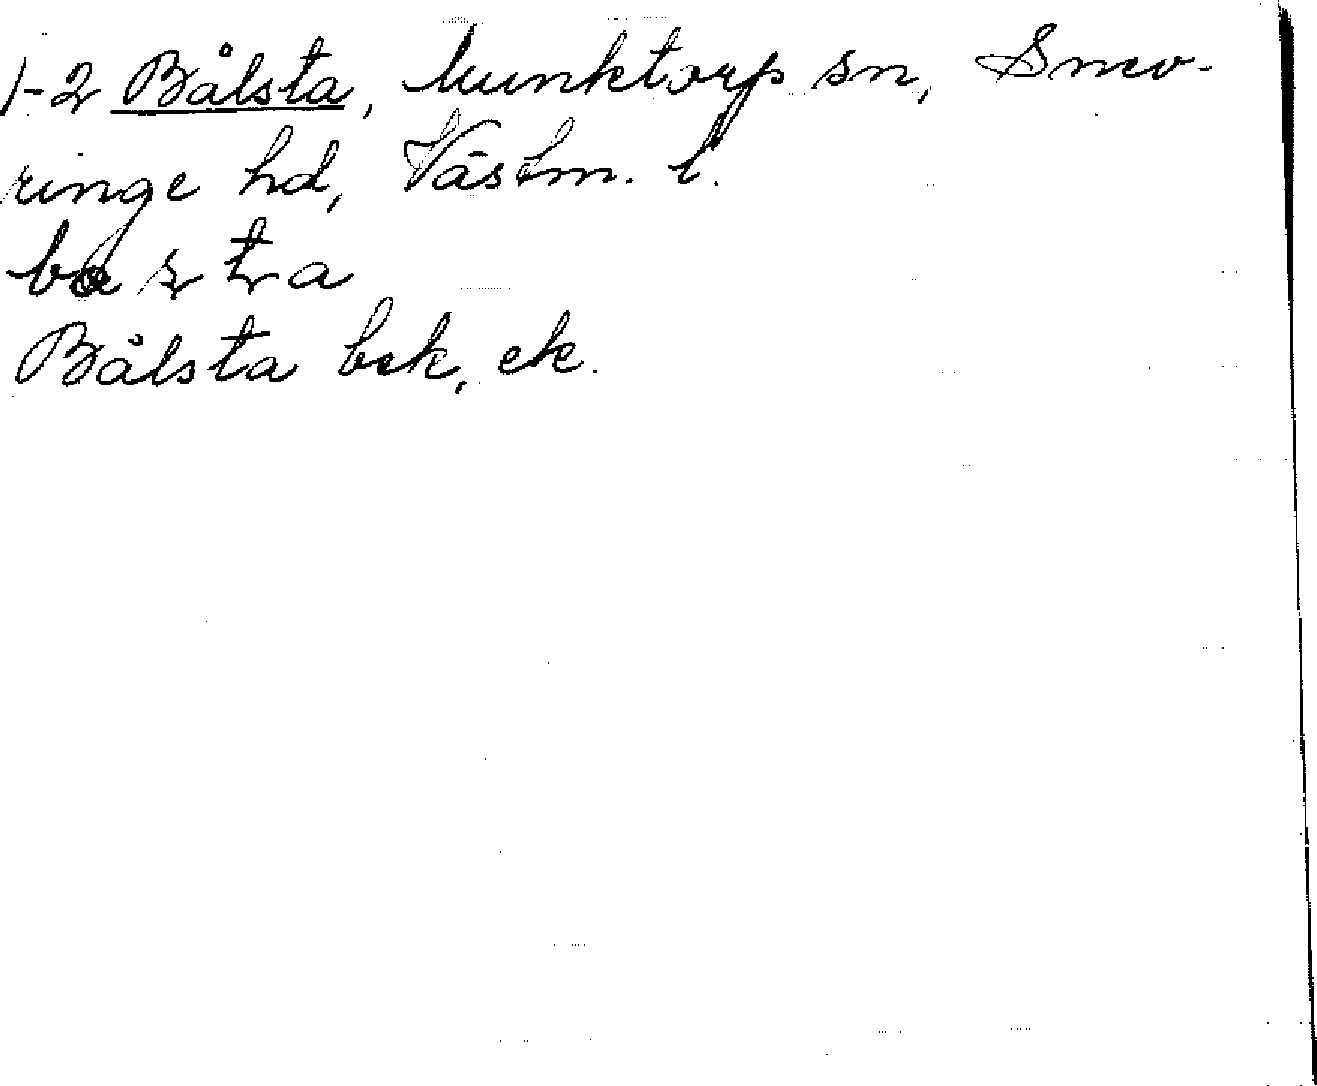 1-2 Bålsta, Munktorp sn, Snev-
ringe hd, Västm. l.
Bålsta bek, ek.